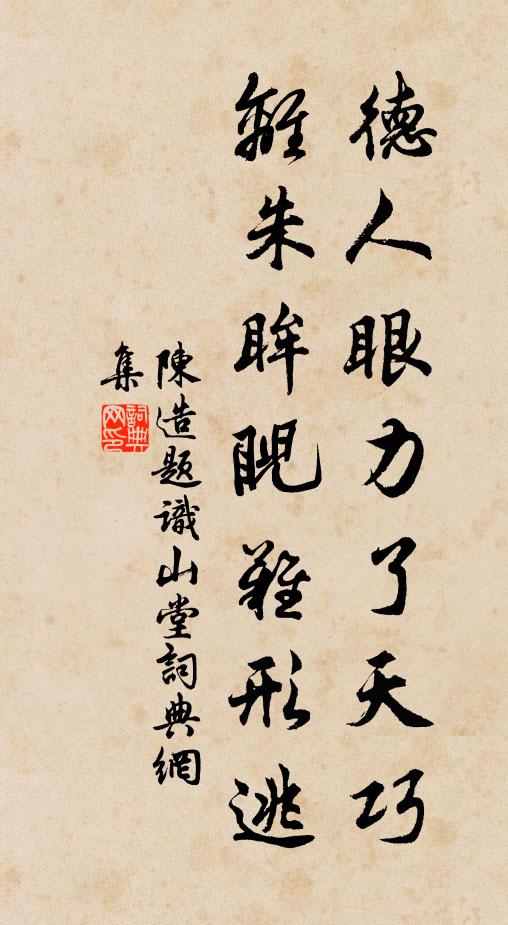 德人眼力了天巧
離朱眸睨難形逃
陳造題識山堂詞典網
集
詞典
网印